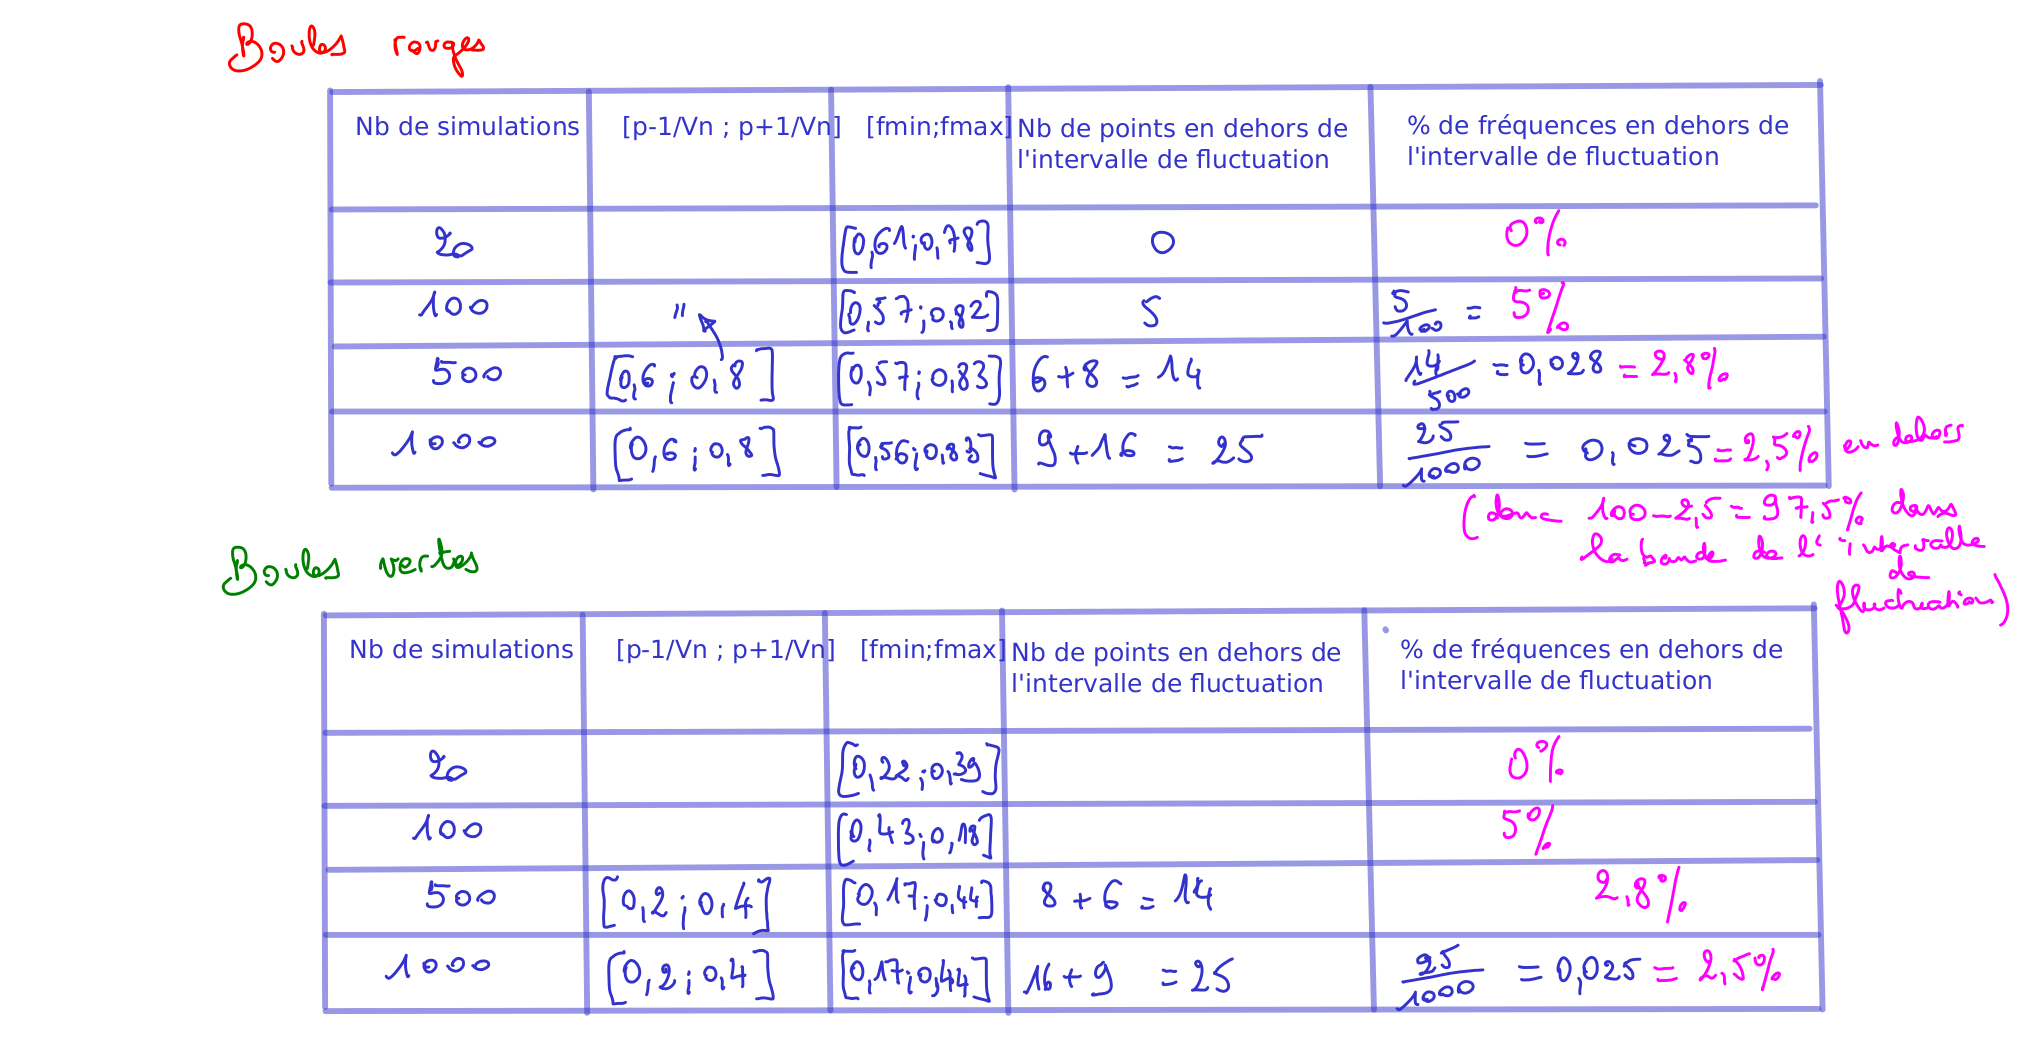 Boules rouges
Nb de simulations [p-1/Vn ; p+1/Vn] [fmin;fmax] Nb de points en dehors de l'intervalle de fluctuation % de fréquences en dehors de l'intervalle de fluctuation
20 [0,61;0,78] 0 0%
100 " [0,57;0,82] 5 5/100 = 5%
500 [0,6 ; 0,8] [0,57;0,83] 6+8 = 14 14/500 = 0,028 = 2,8%
1000 [0,6 ; 0,8] [0,56;0,83] 9+16 = 25 25/1000 = 0,025 = 2,5% en dehors
(donc 100-2,5 = 97,5% dans
la bande de l'intervalle
de
fluctuation)
Boules vertes
Nb de simulations [p-1/Vn ; p+1/Vn] [fmin;fmax] Nb de points en dehors de l'intervalle de fluctuation % de fréquences en dehors de l'intervalle de fluctuation
20 [0,22;0,39] 0%
100 [0,43;0,18] 5%
500 [0,2 ; 0,4] [0,17;0,44] 8 + 6 = 14 2,8%
1000 [0,2 ; 0,4] [0,17;0,44] 16 + 9 = 25 25/1000 = 0,025 = 2,5%